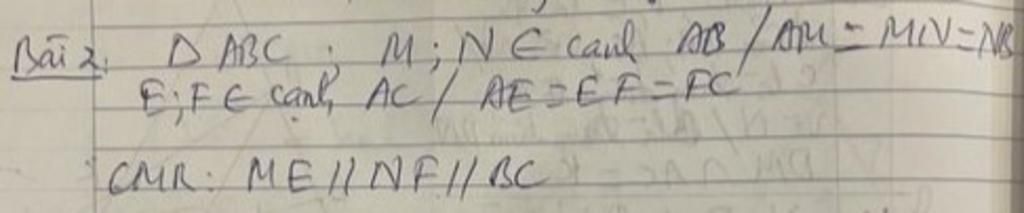 Bài 2. Δ ABC ; M; N ∈ cạnh AB / AM = MN = NB
E; F ∈ cạnh AC / AE = EF = FC
CMR: ME // NF // BC